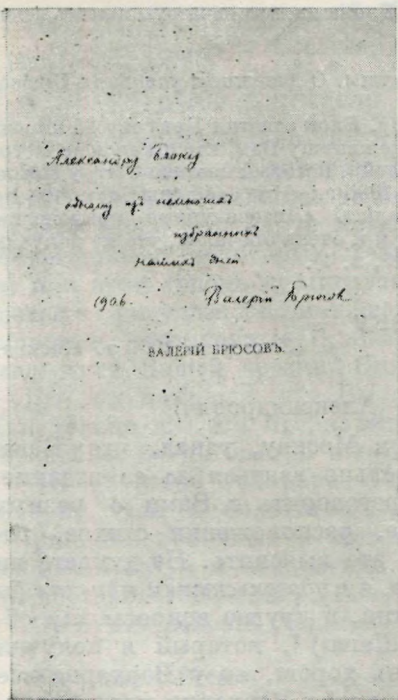 Александру Блоку
одному изъ немногихъ
избранныхъ
нашихъ дней
1906. Валерій Брюсов
ВАЛЕРІЙ БРЮСОВЪ.